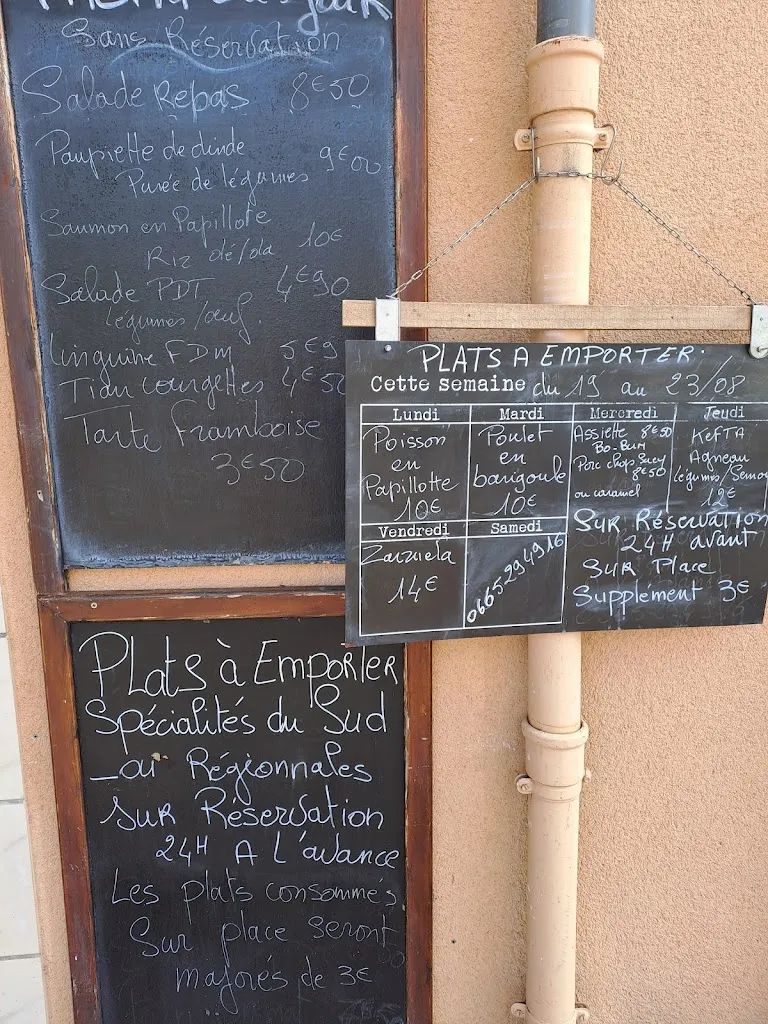 Sans Réservation
Salade Repas 8€50
Paupiette de dinde 9€00
Purée de légumes
Saumon en Papillote
Riz 10€
Salade PDT 4€90
légumes/œuf.
linguine FDM 5€9
Tian courgettes 4€50
Tarte Framboise
3€50
PLATS A EMPORTER.
Cette semaine du 19 au 23/08
Lundi
Poisson
en
Papillotte
10€
Mardi
Poulet
en
barigoule
10€
Mercredi
Assiette 8€50
Bo-Bun
Porc chop Suey
8€50
ou caramel
Jeudi
KEFTA
Agneau
légumes/Semou
12€
Vendredi
Zarzuela
14€
Samedi
0665294916
Sur Réservation
24H avant
Sur Place
Supplément 3€
Plats à Emporter
Spécialités du Sud
_ou Régionnales
Sur Réservation
24H A L'avance
Les plats consommés
Sur place seront
majorés de 3€